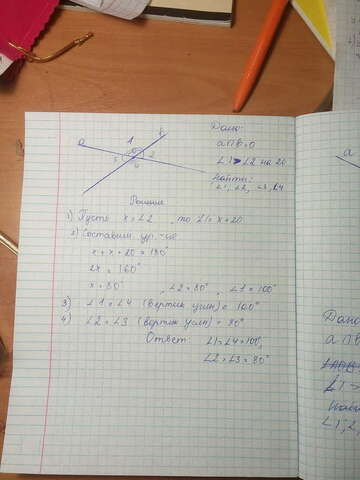 Дано:
a b 1 2 3 4
a∩b=0
∠1>∠2 на 20
Найти:
∠1, ∠2, ∠3, ∠4
Решение
1) Пусть x=∠2, то ∠1=x+20
2) Составим ур-ие
x+x+20=180°
2x=160°
x=80°, ∠2=80°, ∠1=100°
3) ∠1=∠4 (вертик углы)=100°
4) ∠2=∠3 (вертик углы)=80°
Ответ: ∠1=∠4=100°,
∠2=∠3=80°
a
Дано:
a∩b
∠1>
Найти
∠1,∠2,